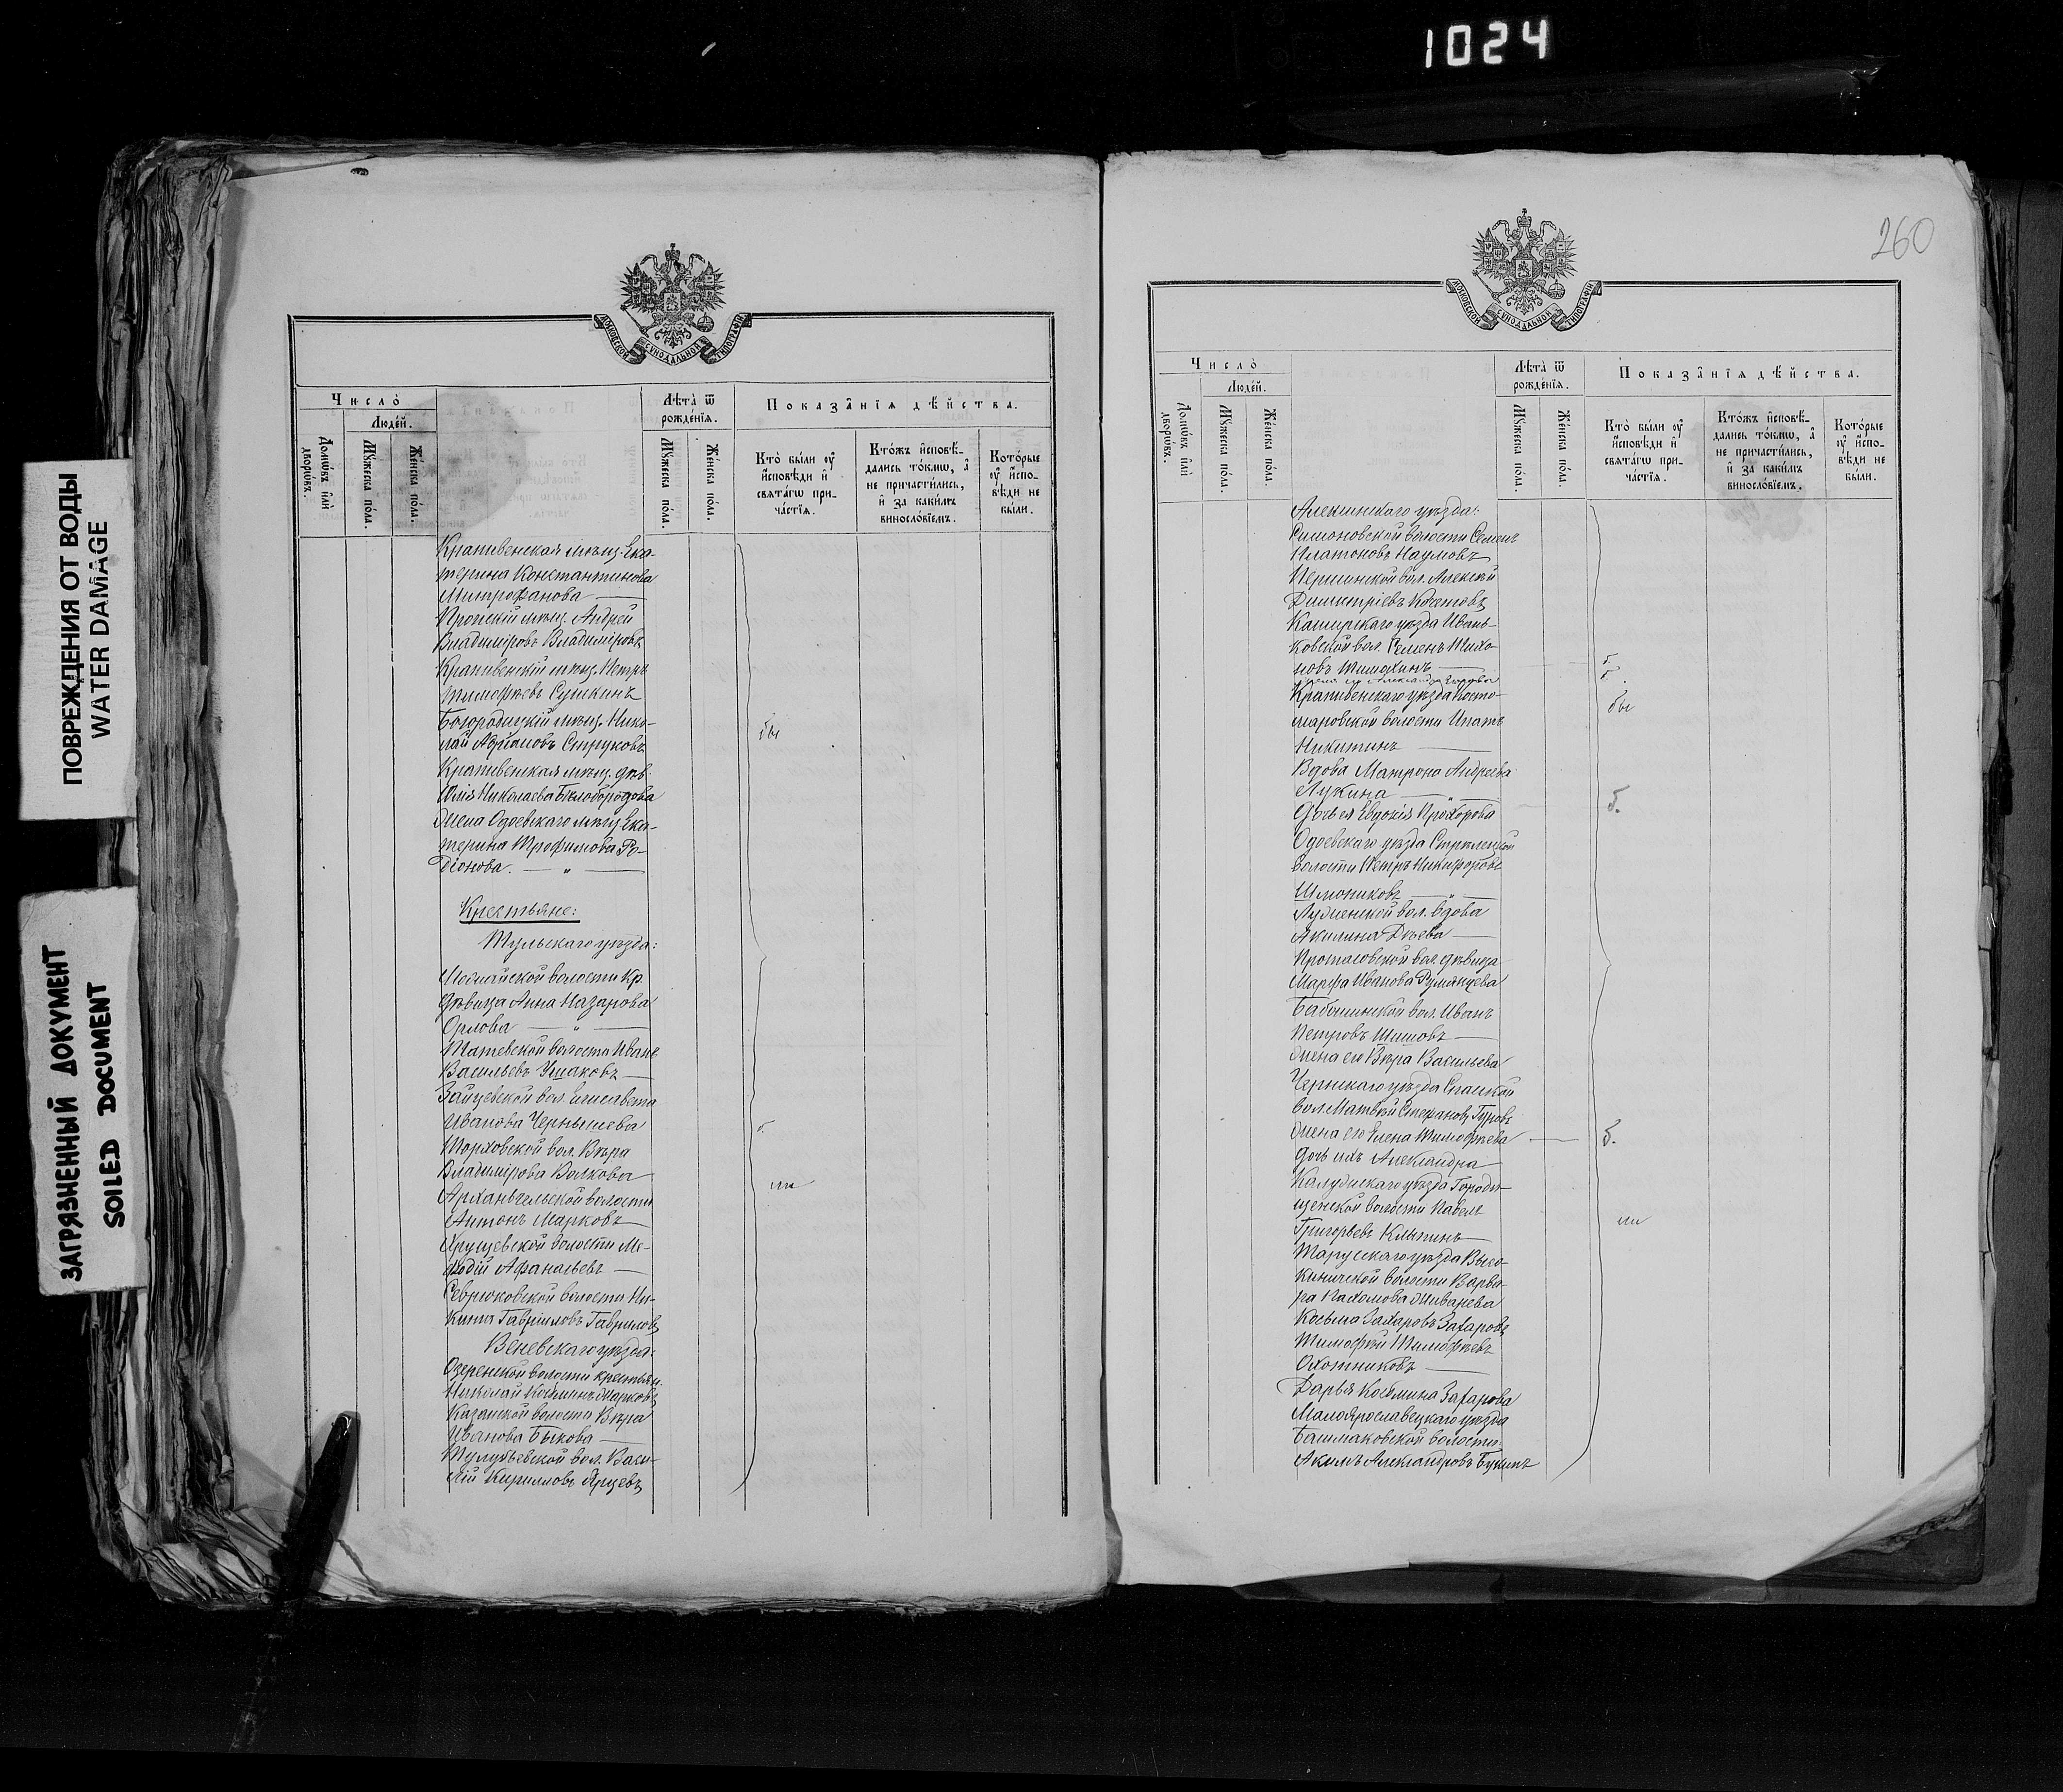 1024
ПОВРЕЖДЕНИЯ ОТ ВОДЫ
WATER DAMAGE
ЗАГРЯЗНЕННЫЙ ДОКУМЕНТ
SOILED DOCUMENT
МОСКОВСКОЙ СУНОДАЛЬНОЙ ТИПОГРАФІИ
Число̀
Людей.
Домѡвъ и҆лѝ дворѡвъ.
Мꙋжеска по́ла.
Же́нска по́ла.
Лѣ́та ѿ рожде́нїѧ.
Мꙋжеска по́ла.
Же́нска по́ла.
Показа̑нїѧ дѣ́йства.
Кто̀ бы́ли ᲂу҆ и҆сповѣ́ди и҆ свѧта́гѡ прича́стїѧ.
Кто́жъ и҆сповѣ́дались то́кмѡ, а҆ не причасти́лись, и҆ за каки́мъ винословїемъ.
Кото́рые ᲂу҆ и҆сповѣ́ди не бы́ли.
Крапивенская мѣщ. Ека-
терина Константинова
Митрофанова —
Пронскій мѣщ. Андрей
Владиміровъ Владиміровъ
Крапивенскій мѣщ. Петръ
Тимофѣевъ Сушкинъ
Богородицкій мѣщ. Нико-
лай Адріановъ Струковъ
Крапивенская мѣщ. дѣв.
Юлія Николаева Бѣлобородова
Жена Одоевскаго мѣщ. Ека-
терина Трофимова Ро-
діонова. — " —
бы
Крестьяне:
Тульскаго уѣзда:
волости Кр.
дѣвица Анна Назарова
Орлова — " —
волости Иванъ
Васильевъ Ушаковъ —
Зайцевской вол. Елисавета
Иванова Чернышева
Торховской вол. Вѣра
Владимірова Волкова
Архангельской волости
Антонъ Марковъ
Хрущевской волости Ме-
фодій Афанасьевъ —
Севрюковской волости Ни-
кита Гавриловъ Гавриловъ
Веневскаго уѣзда:
Озеренской волости крестьян.
Николай Косьминъ Жарковъ
Казанской волости Вѣра
Иванова Быкова —
Тулубьевской вол. Васи-
лій Кирилловъ Ярцевъ
260
МОСКОВСКОЙ СУНОДАЛЬНОЙ ТИПОГРАФІИ
Число̀
Людей.
Домѡвъ и҆лѝ дворѡвъ.
Мꙋжеска по́ла.
Же́нска по́ла.
Лѣ́та ѿ рожде́нїѧ.
Мꙋжеска по́ла.
Же́нска по́ла.
Показа̑нїѧ дѣ́йства.
Кто̀ бы́ли ᲂу҆ и҆сповѣ́ди и҆ свѧта́гѡ прича́стїѧ.
Кто́жъ и҆сповѣ́дались то́кмѡ, а҆ не причасти́лись, и҆ за каки́мъ винословїемъ.
Кото́рые ᲂу҆ и҆сповѣ́ди не бы́ли.
Алексинскаго уѣзда:
Симоновской волости Семенъ
Платоновъ Наумовъ
Першинской вол. Алексѣй
Димитріевъ
Каширскаго уѣзда Ивань-
ковской вол. Семенъ Тихо-
новъ Тимохинъ —
Крапивенскаго уѣзда Косто-
маровской волости Игнатъ
Никитинъ —
бы
Вдова Матрона Андреева
Лукина — " —
Дочь ея Евдокія Прохорова
б.
Одоевскаго уѣзда Стрѣлецкой
волости Петръ Никифоровъ
Шмониковъ — " —
вол. вдова
Акилина —
Протасовской вол. дѣвица
Марфа Иванова Румянцева
Бабошинской вол. Иванъ
Петровъ Шишовъ —
Жена его Вѣра Васильева
Чернскаго уѣзда Спасской
вол. Матвѣй Стефановъ Гуровъ
Жена его Елена Тимофѣева
б.
дочь ихъ Александра
Калужскаго уѣзда Городи-
щенской волости Павелъ
Григорьевъ
Тарусскаго уѣзда Высо-
киничской волости Варва-
ра Пахомова Живарева
Косьма Захаровъ Захаровъ
Тимофей Тимофѣевъ
Охотниковъ —
Дарья Косьмина Захарова
Малоярославецкаго уѣзда
Башмаковской волости:
Акимъ Александровъ Букинъ